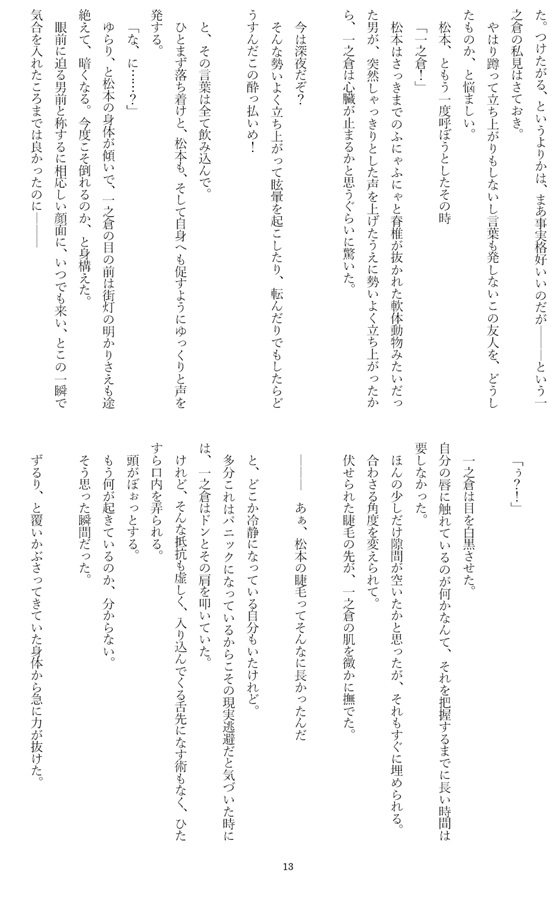 た。つけたがる、というよりかは、まあ事実格好いいのだが――――という一
之倉の私見はさておき。
やはり蹲って立ち上がりもしないし言葉も発しないこの友人を、どうし
たものか、と悩ましい。
松本、ともう一度呼ぼうとしたその時
「一之倉！」
松本はさっきまでのふにゃふにゃと脊椎が抜かれた軟体動物みたいだっ
た男が、突然しゃっきりとした声を上げたうえに勢いよく立ち上がったか
ら、一之倉は心臓が止まるかと思うぐらいに驚いた。
今は深夜だぞ？
そんな勢いよく立ち上がって眩暈を起こしたり、転んだりでもしたらど
うすんだこの酔っ払いめ！
と、その言葉は全て飲み込んで。
ひとまず落ち着けと、松本も、そして自身へも促すようにゆっくりと声を
発する。
「な、に……？」
ゆらり、と松本の身体が傾いで、一之倉の目の前は街灯の明かりさえも途
絶えて、暗くなる。今度こそ倒れるのか、と身構えた。
眼前に迫る男前と称するに相応しい顔面に、いつでも来い、とこの一瞬で
気合を入れたころまでは良かったのに――――
「ぅ？！」
一之倉は目を白黒させた。
自分の唇に触れているのが何かなんて、それを把握するまでに長い時間は
要しなかった。
ほんの少しだけ隙間が空いたかと思ったが、それもすぐに埋められる。
合わさる角度を変えられて。
伏せられた睫毛の先が、一之倉の肌を微かに撫でた。
――――　あぁ、松本の睫毛ってそんなに長かったんだ
と、どこか冷静になっている自分もいたけれど。
多分これはパニックになっているからこその現実逃避だと気づいた時に
は、一之倉はドンとその肩を叩いていた。
けれど、そんな抵抗も虚しく、入り込んでくる舌先になす術もなく、ひた
すら口内を弄られる。
頭がぼぉっとする。
もう何が起きているのか、分からない。
そう思った瞬間だった。
ずるり、と覆いかぶさってきていた身体から急に力が抜けた。
13